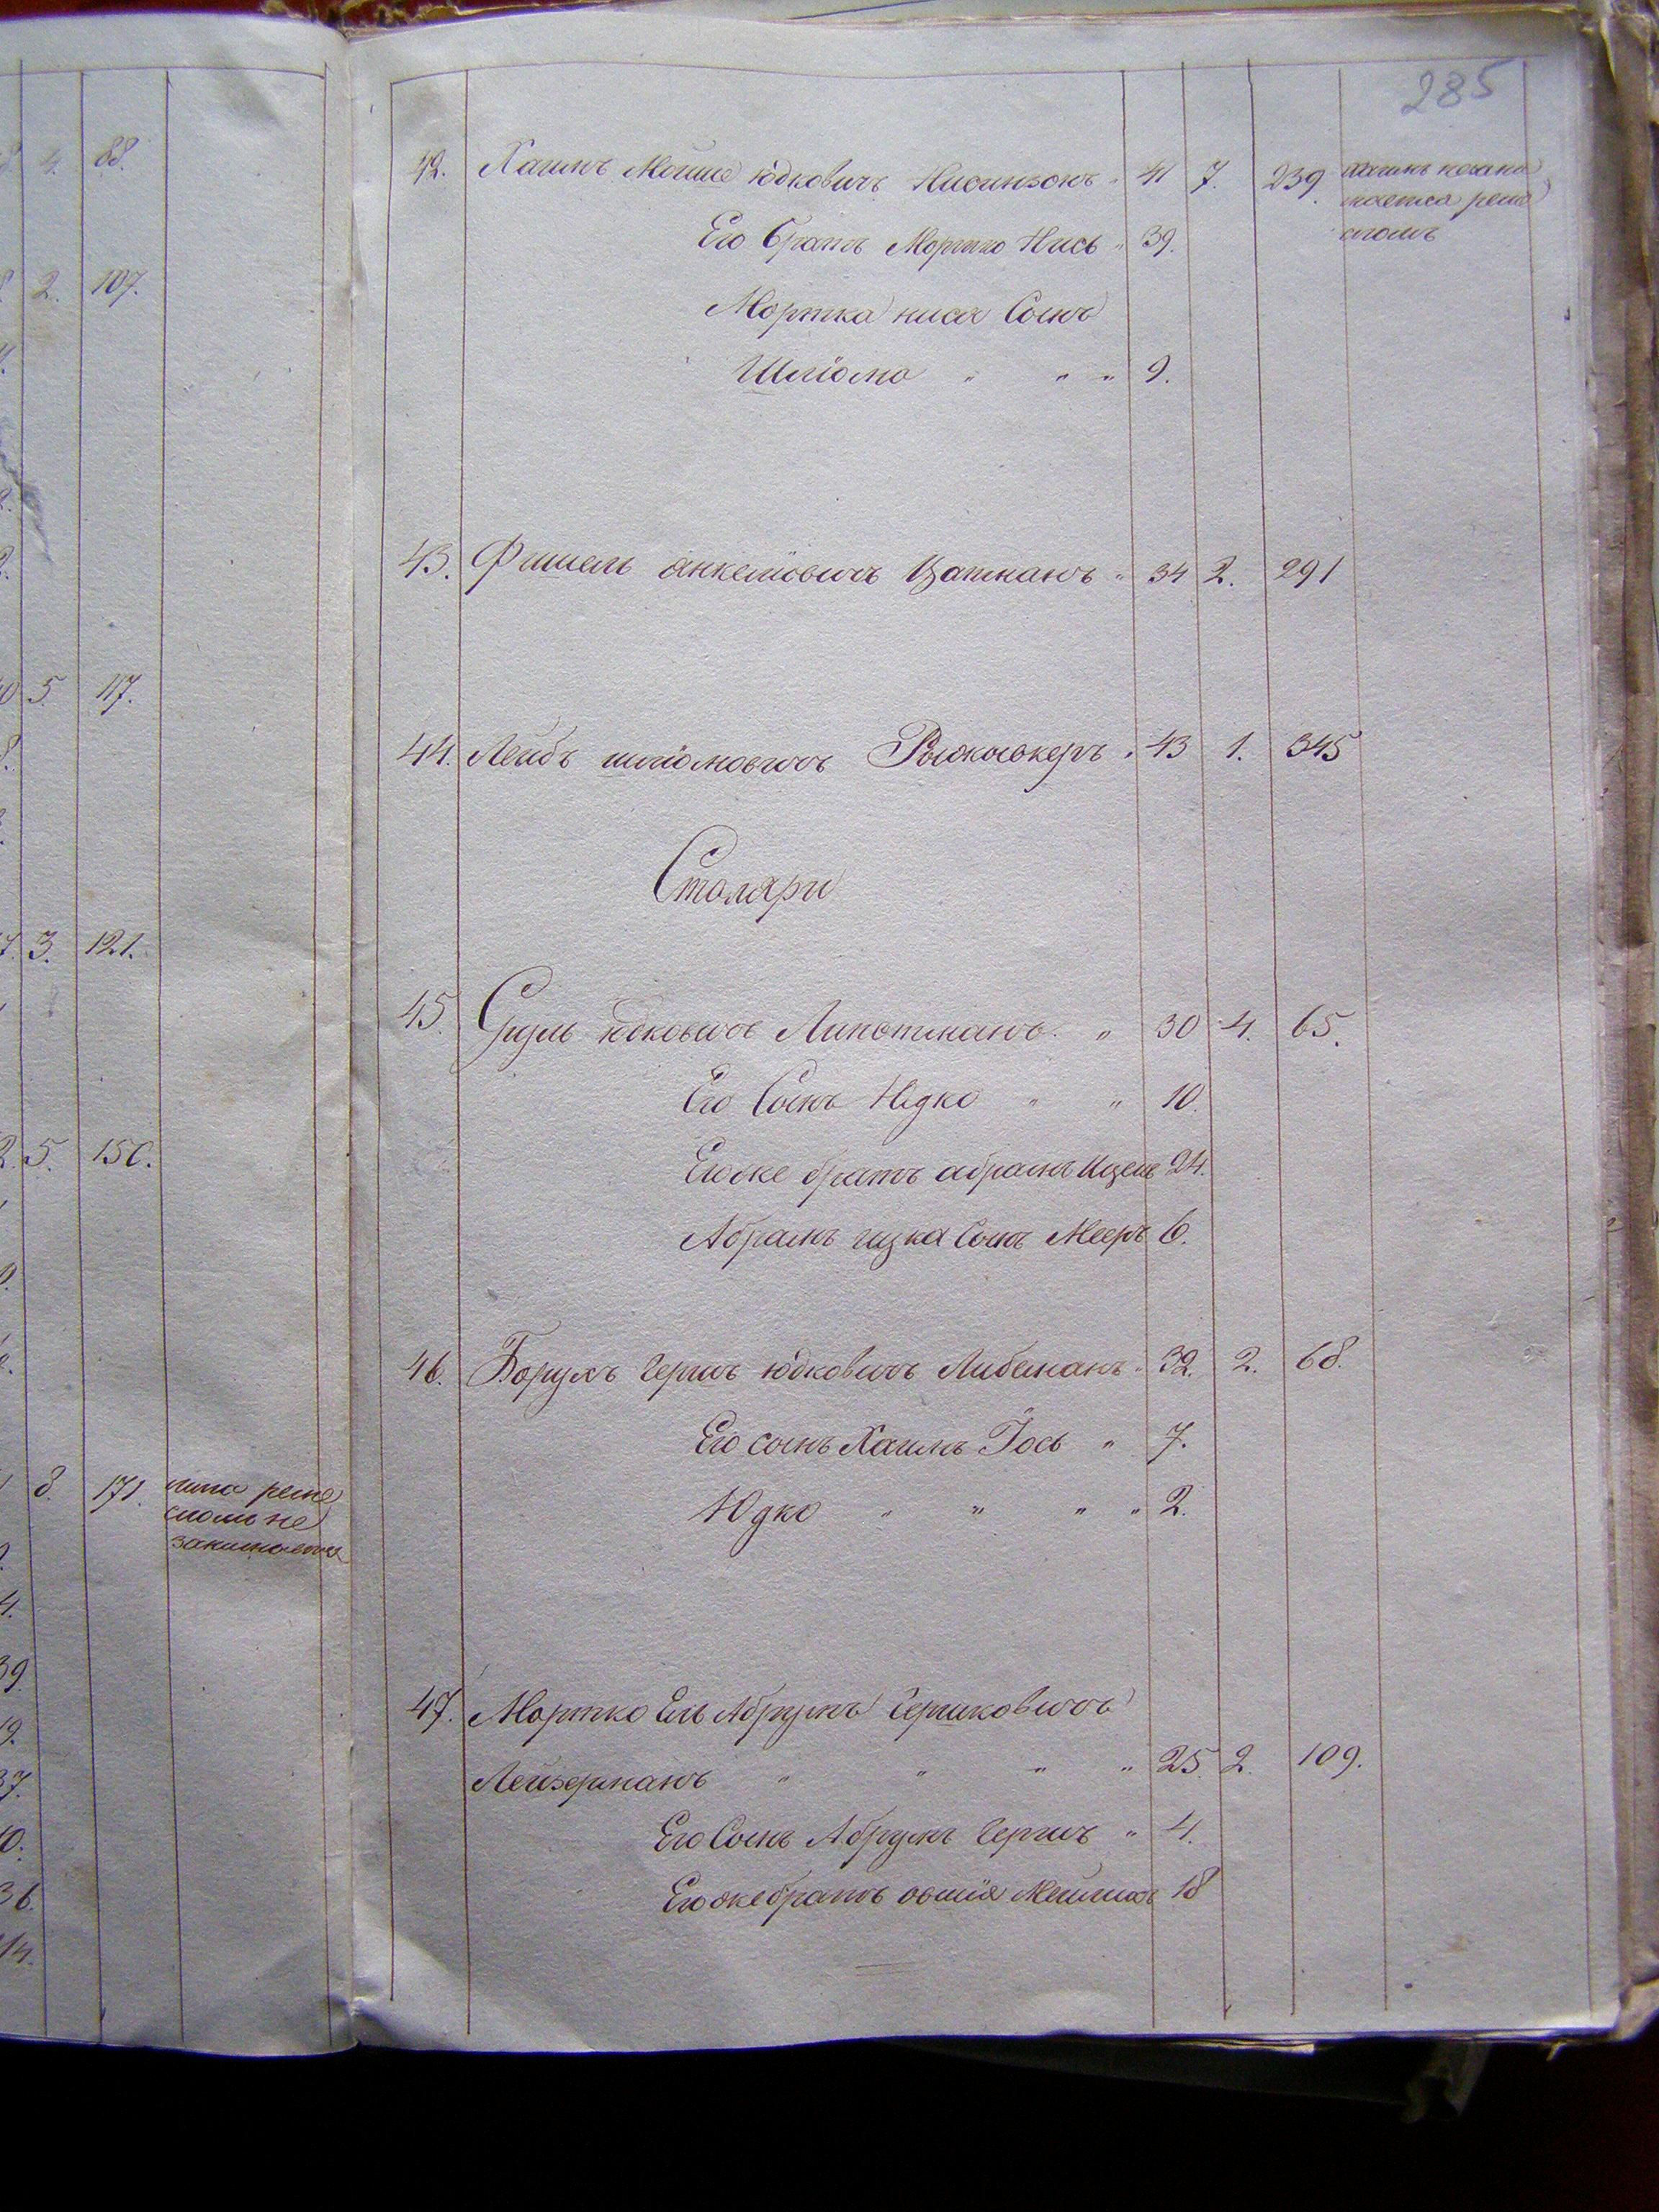 4. 88.
2. 107.
5. 117.
3. 121.
5. 150.
8. 171. ремесломъ не занимается
39
36.
14.
285
42. Хаимъ Мошие Юдковичъ Нисинзонъ " 41 7. 239. Хаимъ незанимается ремесломъ
Его братъ Мортко Нись " 39.
Мортка нися Сынъ
Шліома " " " 9.
43. Фишель Янкеліовичъ Цатманъ " 34 2. 291
44. Лейбъ шліомовичъ " 43 1. 345
Столяри
45. Сруль Юдковичъ Липотманъ " 30 4. 65.
Его Сынъ Юдко " " 10.
Егоже братъ абрамъ Ицекъ 24.
Абрамъ ицка Сынъ Мееръ 6.
46. Борухъ Гершъ Юдковичъ Либманъ " 32. 2. 68.
Его сынъ Хаимъ Іось " 7.
Юдко " " " " 2.
47. Мортко Ель Абрумъ Гершковичъ
Лейзерманъ " " " " 25. 2. 109.
Его Сынъ Абрумъ Гершъ " 4.
Егоже братъ овшія Мейлихъ 18